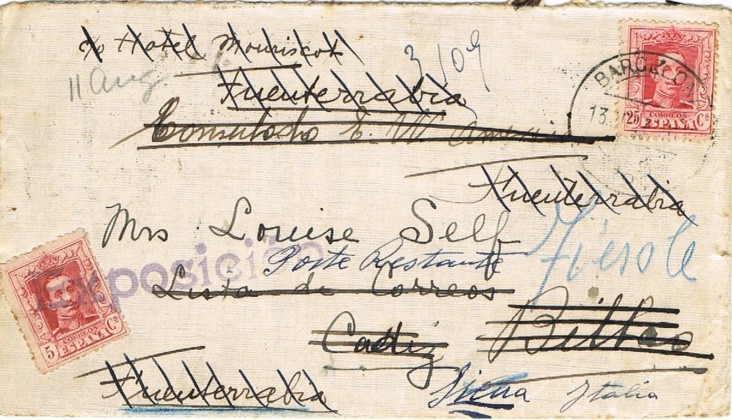 c/o Hotel Mouriscot
11 Aug
3/09
Fuenterrabia
Consulado E. U.
BARCELO
13
25 Cs
CORREOS
ESPAÑA
Fuenterrabia
Mrs Louise Self
Fiesole
Exposición
Poste Restante
Lista de Correos
Cadiz Bilbao
5 Cs
CORREOS
ESPAÑA
Fuenterrabia
Siena Italia